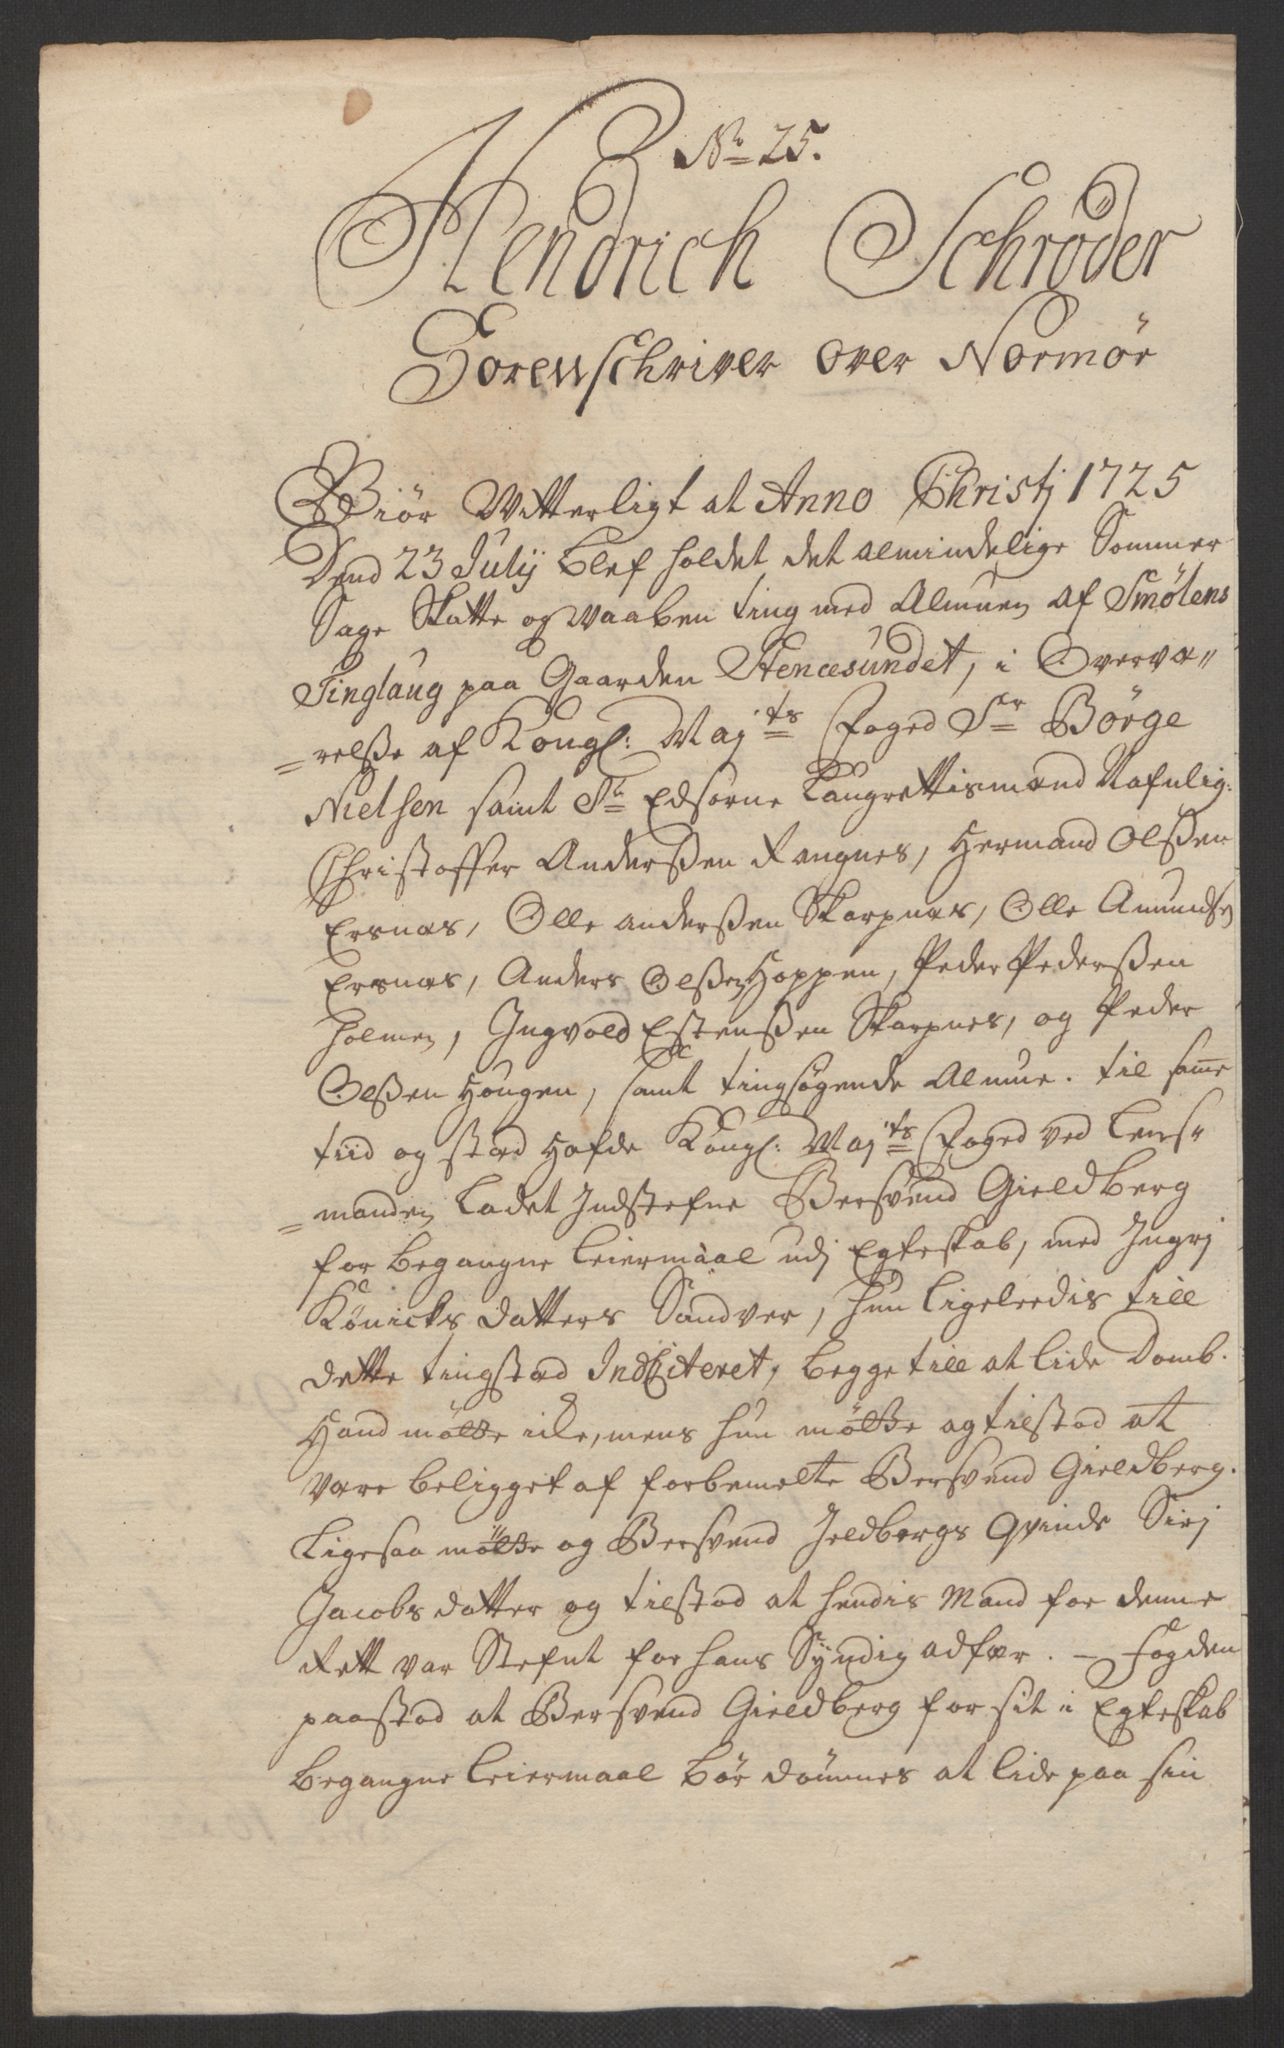 No 25.
Hendrich Schrøder
Sorenschriver over Normör
Giör Witterligt at Anno Christj 1725
Dend 23 Julij blef holdet det almindelige Sommer
Sage Skatte og Waaben ting med Almuen af Smölens
Tinglaug paa Gaarden Stenesundet, i Overvæ„
relsse af Kongl: Majts Foged Sr Börge
Nielsen samt Edsorne Laugrettismænd Nafnlig:
Christoffer Anderssen Rangnes, Hermand Olssen
Ersnæs, Olle anderssen Skarpnæs, Olle Amundsen
Ersnæs, Anders Olssen Hoppen, Peder Pederssen
Holmen, Ingvold Estenssen Skarpnes, og Peder
Olssen Hougen, samt tingsögende Almue. til samme
tiid og stæd Hafde Kongl: Majts Foged ved Lens„
manden Ladet Indstefne Bersvend Gieldberg
for begangne Leiermaal udj Egteskab, med Ingrj
Könicks datters Sandver, hun ligeleedis till
dette tingstæd Indciteret, begge till at lide Domb.
Hand mötte icke, mens hun mötte og tilstod at
være beligget af forbemelte Bersvend Gieldberg.
Ligesaa mötte og Bersvend Jeldbergs Qvinde Sirj
Jacobs datter og tilstod at hendis Mand for denne
Rett var Stefnt for hans Syndig adfær. – Fogden
paastod at Bersvend Gieldberg for sit i Egteskab
begangne Leiermaal bör dömmes at lide paa sin